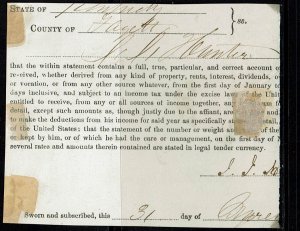 STATE OF Kentucky } ss.
COUNTY OF Fayette
Hunter
that the within statement contains a full, true, particular, and correct account o
received, whether derived from any kind of property, rents, interest, dividends,
or voration, or from any other source whatever, from the first day of January to
days inclusive, and subject to an income tax under the excise laws of the Unit
entitled to receive, from any or all sources of income together, and
detail, except such amounts as, though justly due to the affiant, are and
to make the deductions from his income for said year as specifically stated detail,
of the United States; that the statement of the number or weight and of the
or kept by him, or of which he had the care or management, on the first day of M
several rates and amounts therein contained are stated in legal tender currency.
Sworn and subscribed, this 31 day of